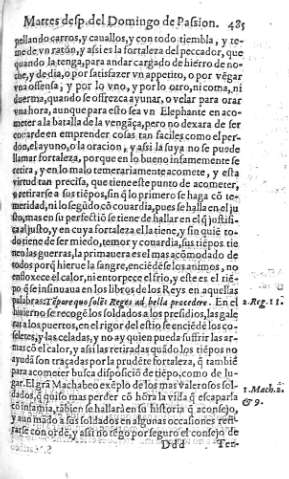 Martes desp. del Domingo de Passion. 485
pellando carros, y cauallos, y con todo tiembla, y te-
me de vn ratón, y assi es la fortaleza del peccador, que
quando la tenga, para andar cargado de hierro de no-
che, y de dia, o por satisfazer vn appetito, o por vēgar
vna offensa, y por lo vno, y por lo otro, ni coma, ni
duerma, quando se offrezca ayunar, o velar para orar
vna hora, aunque para esto sea vn Elephante en aco-
meter a la batalla de la vengāça, pero no dexara de ser
couarde en emprender cosas tan faciles como el per-
don, el ayuno, o la oracion, y assi la suya no se puede
llamar fortaleza, porque en lo bueno infamemente se
retira, y en lo malo temerariamente acomete, y esta
virtud tan precisa, que tiene este punto de acometer,
o retirarse a sus tiēpos, sin q̃ lo primero se haga cō te-
meridad, ni lo segūdo cō couardia, pues se halla en el ju
sto, mas en su perfectiō se tiene de hallar en el q̃ justifi-
ca al justo, y en cuya fortaleza el la tiene, y sin quiē to-
do tiene de ser miedo, temor y couardia, sus tiēpos tie
nen las guerras, la primauera es el mas acōmodado de
todos porq̃ hierue la sangre, enciēdē se los animos, no
enflaxece el calor, ni entorpece el frio, y este es el tiē-
po q̃ se insinua en los libros de los Reyes en aquellas
palabras: Tēpore quo solēt Reges ad bella procedere. En el 2. Reg. 11.
inuierno se recogē los soldados a los presidios, las gale
ras a los puertos, en el rigor del estio se enciēdē los co-
seletes, y las celadas, y no ay quien pueda suffrir las ar-
mas cō el calor, y assi las retiradas quādo los tiēpos no
ayudā son traçadas por la prudēte fortaleza, q̃ tambiē
para acometer busca disposiciō de tiēpo, como de lu-
gar. El grā Machabeo exēplo de los mas valerosos sol- 1. Mach. 2.
dados, q̃ quiso mas perder cō hōra la vida q̃ escaparla & 9.
cō infamia, tābien se hallarà en su historia q̃ aconsejo,
y aun mado a sus soldados en algunas occasiones reti-
rarse con ordē, y assi no tēgo por seguro el consejo de
Ddd Ter-